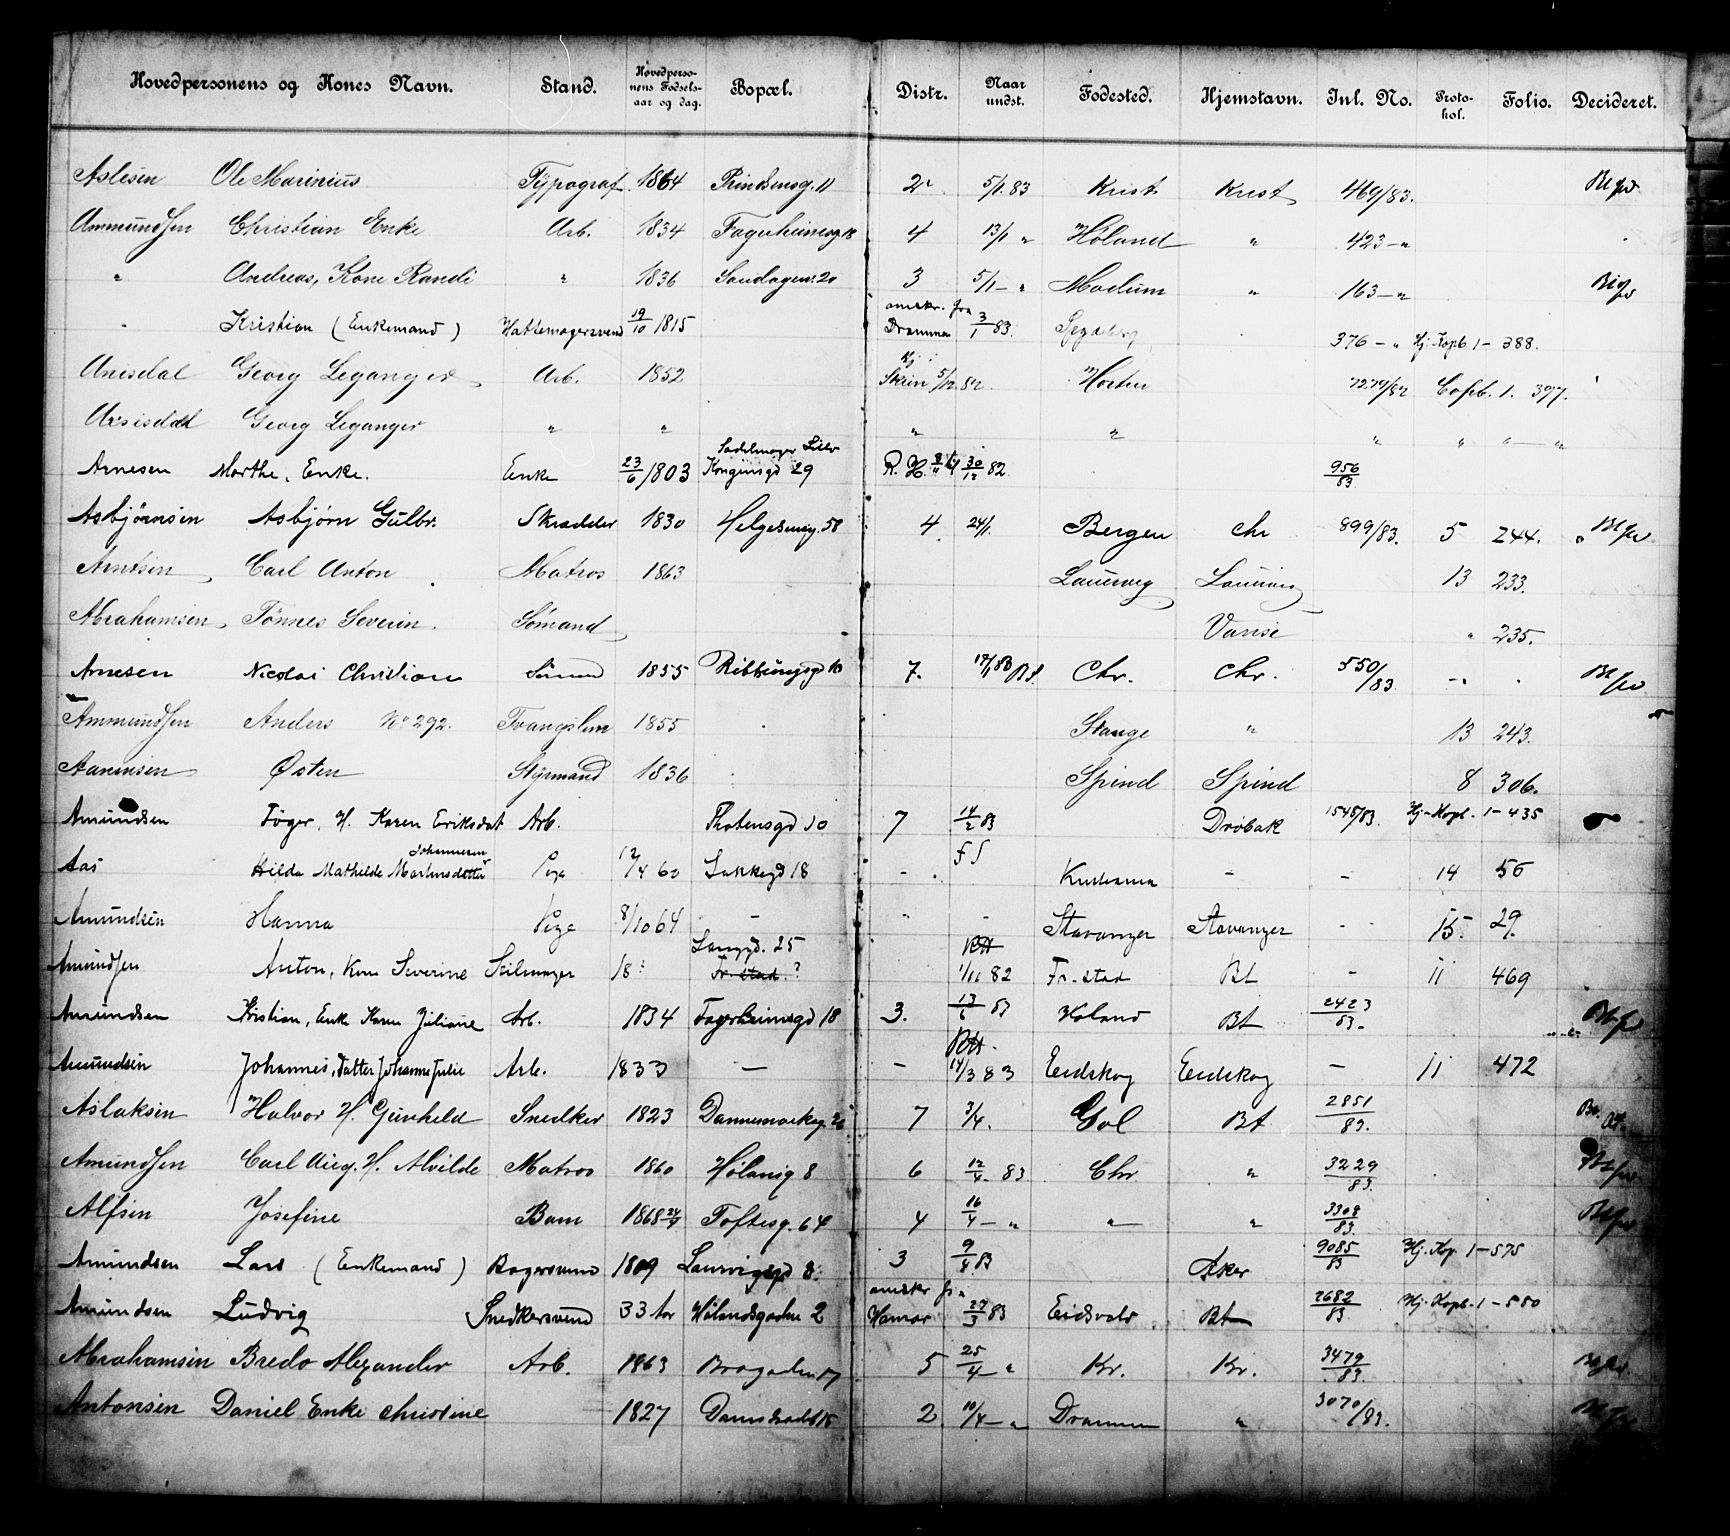 Hovedpersonens og Kones Navn. Stand. Hovedpersonens Fødselsaar og dag. Bopæl. Distr. Naar undst. Fødested. Hjemstavn. Inl. No. Protokol. Folio. Decideret.
Aslesen Ole Marinius Typograf 1864 Prindsensg. 11 2 5/1. 83 Krist. Krist. 469/83.
Ammundsen Christian Enke Arb. 1834 Fagerheimsg 18 4 13/1 " Høland " 423 - "
" Andreas, Kone Randi " 1836 3 5/1 - " Modum " 163 - "
" Kristian (Enkemand) Hattemagersvend 19/10 1815 anskr. fra Drammen 3/1 83. 376 - " Hj. Kopb. 1 - 388.
Georg Leganger Arb. 1852 Hj. Skien 5/12 82 Horten 7279/82 Copb. 1. 397.
Georg Leganger " " " " " " " "
Arnesen Marthe, Enke. Enke 23/6 1803 Kongensgd 29 R. H. 30/12 82 956/83
Asbjørnsen Asbjørn Gulbr. Skrædder 1830 Helgesensg. 58 4 24/1. Bergen Chr 899/83. 5 244.
Arntsen Carl Anton Matros 1863 Laurvig Laurvig 13 233.
Abrahamsen Tønnes Severin. Sømand Vanse " 235.
Arnesen Nicolai Christian Sømand 1855 7. 17/1 83 Chr. Chr. 550/83
Ammundsen Anders No 292. Tvangslem 1855 Stange " 13 243.
Aanensen Østen Styrmand 1836 Spind Spind 8 306.
Amundsen H. Karen Eriksdat Arb. Thotensgd 10 7 14/2 83 Drøbak 1545/83. Hj-Kopb. 1 - 435
Johannesen
Aas Hilda Mathilde Martinsdotter Pige 12/4 60 Lakkegd 18 - Kristiania - - 14 56
Amundsen Hanna Pige 8/10 64 - " - Stavanger Stavanger - 15. 29.
Langgd. 25
Amundsen Anton, Kone Severine 18 Fr.stad ? 1/11 82 Fr.stad Bt - 11 469
Amundsen Kristian, Enke Karen Juliane Arb. 1834 Fagerheimsgd 18 3. 13/6 83 Høland Bt 2423/83.
Amundsen Johannes, Datter Johanne Julie Arb. 1833 - - 14/3 83 Eidskog Eidskog - 11 472
Aslaksen Halvor H. Gunhild Snedker 1823 Dannemarksg. 7 3/4. Gol Bt 2851/83.
Amundsen Carl Aug. H. Alvilde Matros 1860 Hølandsg 8 6 12/4. 83 Chr " 3229/83.
Alfsen Josefine Barn 1868 24/9 Toftesg. 64 4 16/4 - " " " 3308/83.
Amundsen Lars (Enkemand) Bagersvend 1809 Laurvigsgd 8. 3 9/4 83 Aker 9085/83 Hj. Kop. 1 - 575
Amundsen Ludvig Snedkersvend 33 Aar Hølandsgaden 2 anskr fra Hamar 27/3 83 Eidsvold Bt 2682/83 Hj. Kopb. 1 - 580
Abrahamsen Bredo Alexander Arb. 1863 5 25/4 - " Kr. Kr. 3479/83.
Antonsen Daniel Enke Christine 1827 Damstrædet 18 2 10/4 - " Drammen " 3070/83.